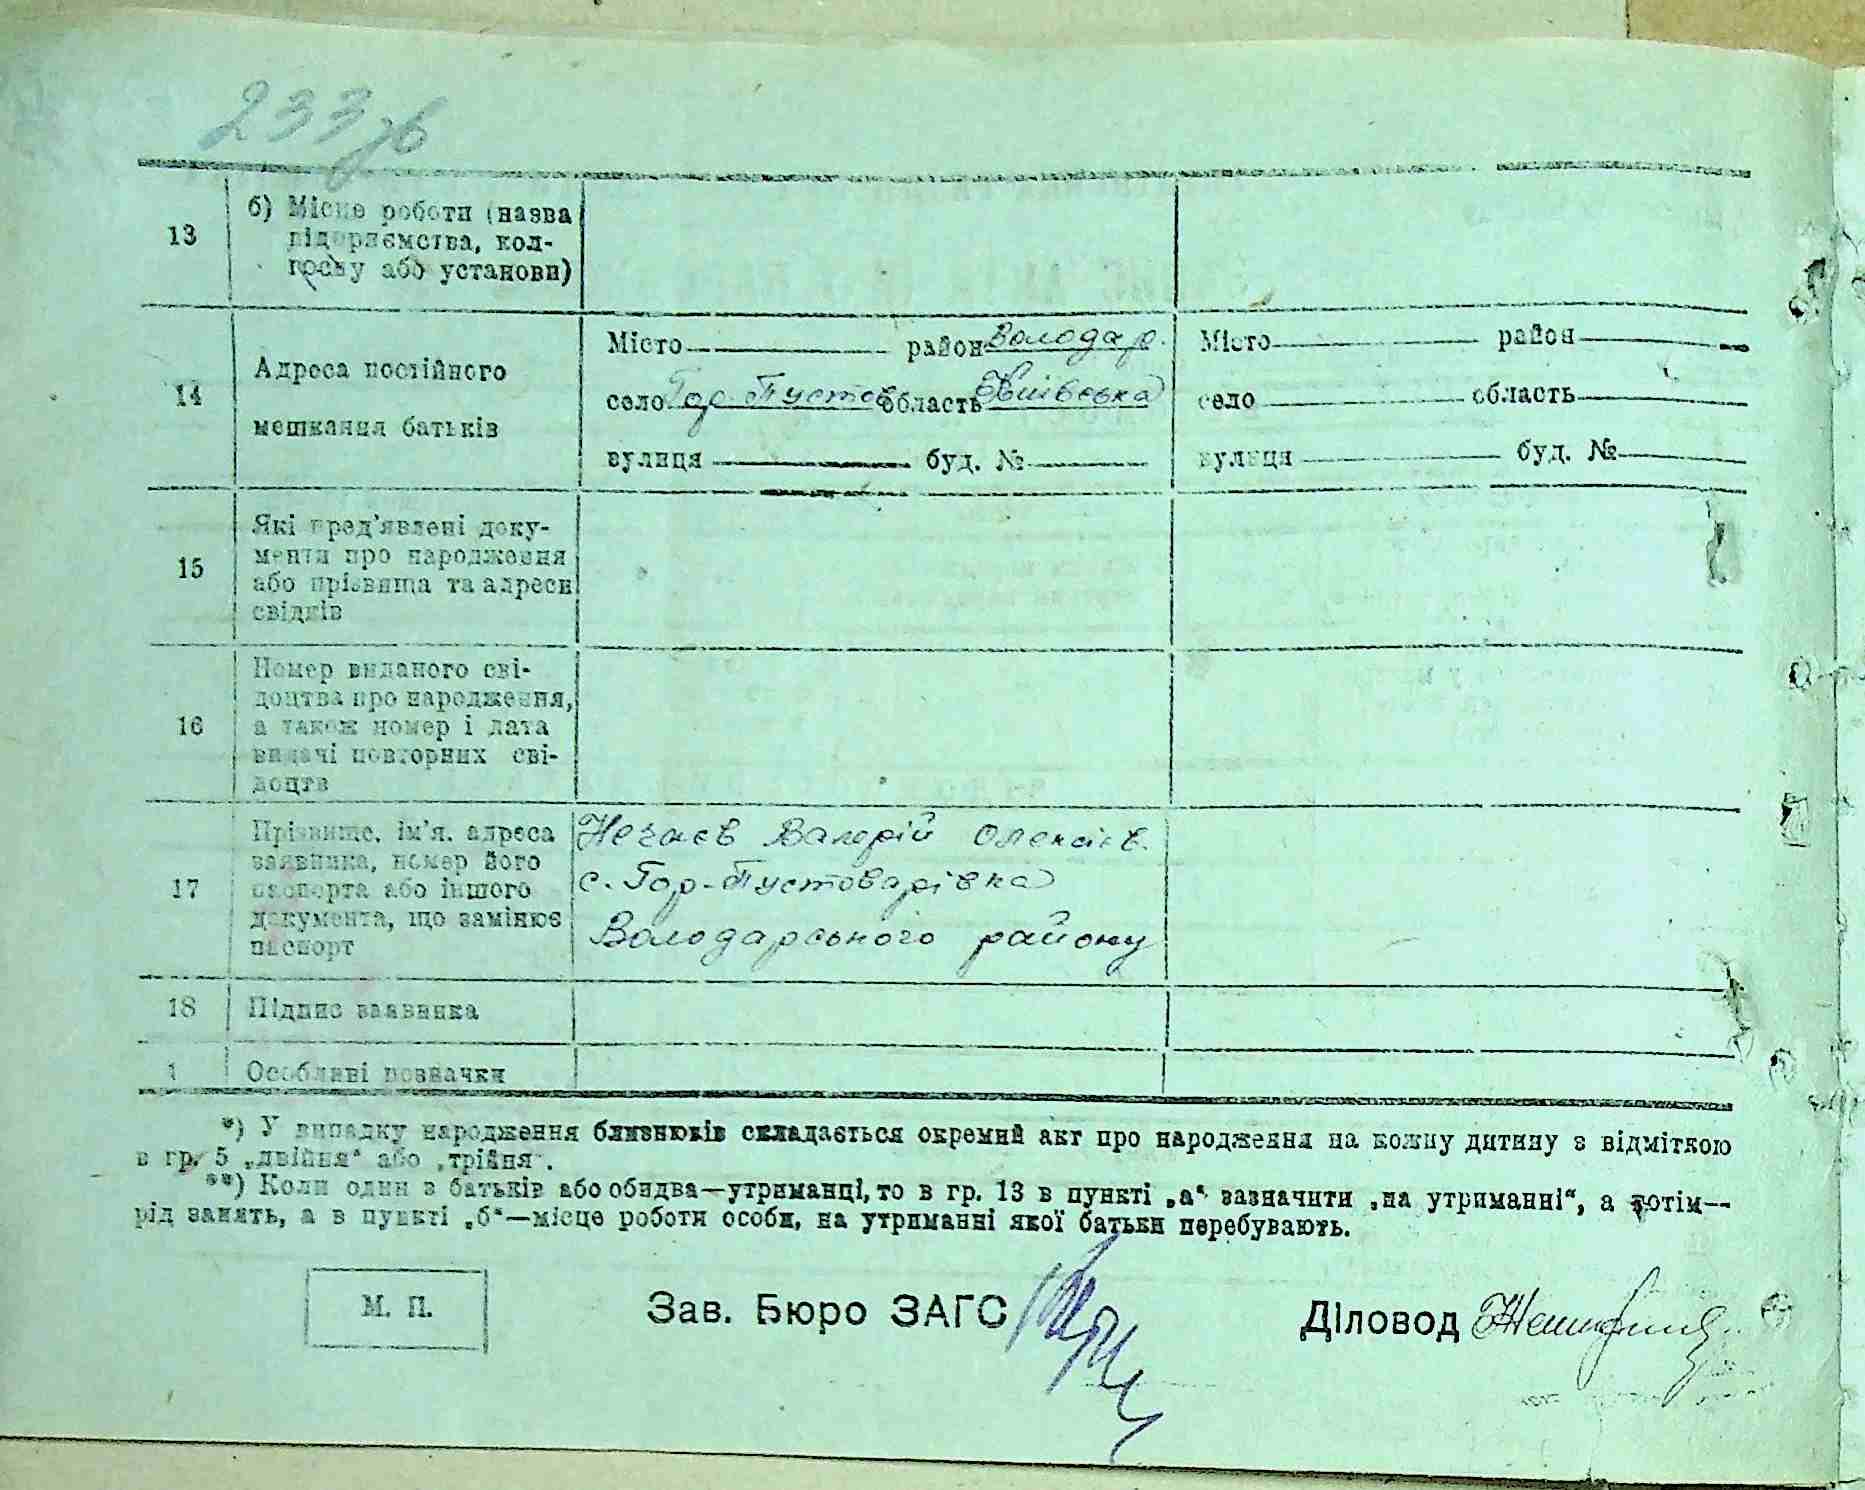 233зв
13
б) Місце роботи (назва
підприємства, кол-
госпу або установи)
14
Адреса постійного
мешкання батьків
Місто район Володар.
село Гор-Пустов область Київська
вулиця буд. №
Місто район
село область
вулиця буд. №
15
Які пред'явлені доку-
менти про народження
або прізвища та адреси
свідків
16
Номер виданого сві-
доцтва про народження,
а також номер і дата
видачі повторних сві-
доцтв
17
Прізвище, ім'я, адреса
заявника, номер його
паспорта або іншого
документа, що замінює
паспорт
Нечаєв Валерій Олексієв.
с. Гор-Пустоварівка
Володарського району
18
Підпис заявника
1
Особливі позначки
*) У випадку народження близнюків складається окремий акт про народження на кожну дитину з відміткою
в гр. 5 „двійня“ або „трійня“.
**) Коли один з батьків або обидва—утриманці, то в гр. 13 в пункті „а“ зазначити „на утриманні“, а потім—
рід занять, а в пункті „б“—місце роботи особи, на утриманні якої батьки перебувають.
М. П.
Зав. Бюро ЗАГС
Діловод